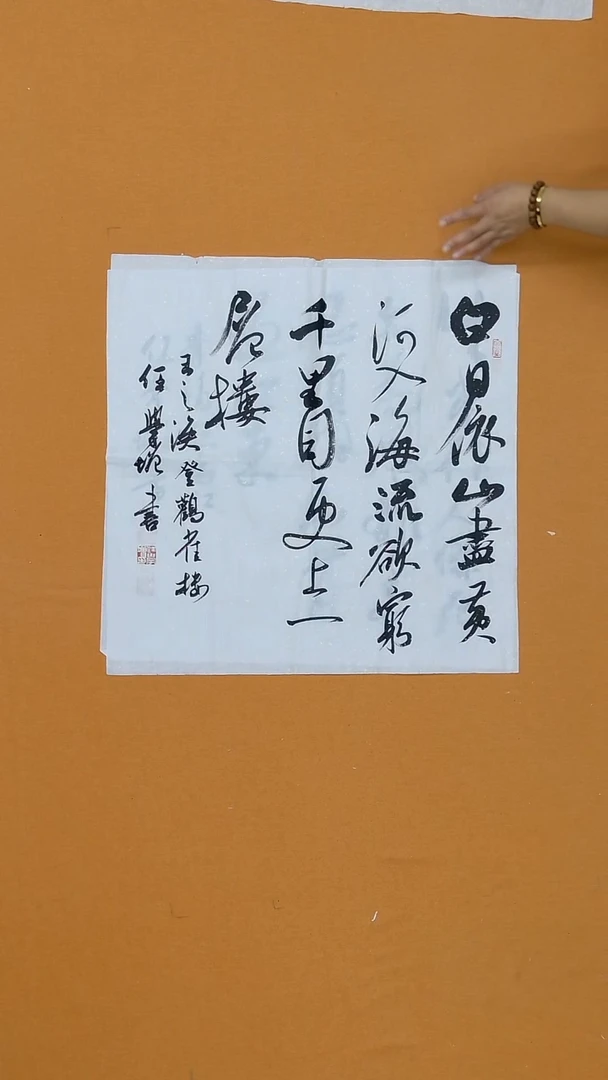 白日依山盡黃
河入海流欲窮
千里目更上一
層樓
王之渙登鸛雀樓
任學堰書